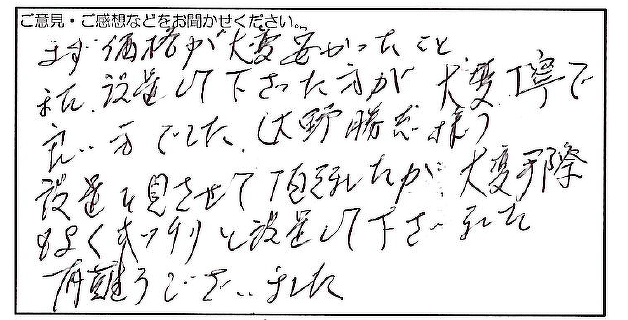 ご意見・ご感想などをお聞かせください。
まず価格が大変安かったこと
また、設置して下さった方が大変丁寧で
良い方でした。(大野勝志様)
設置を見させて頂きましたが、大変手際
よくキッチリと設置して下さいました
有難うございました